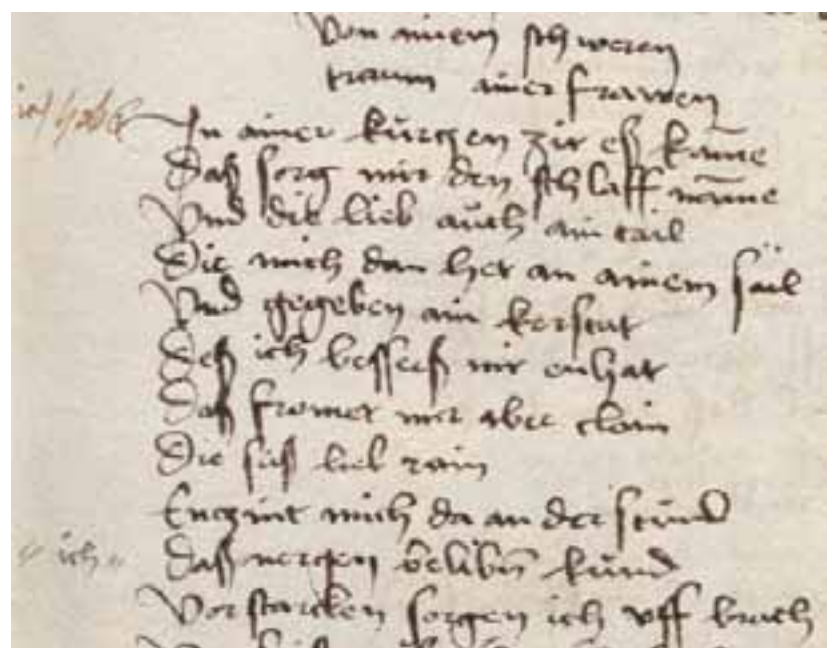 Von ainem schweren
traum ainer frawen
In ainer kurczen zit es kam̄e
Das sorg mir den schlaff nam̄e
Vnd die lieb auch ain tail
Die mich dan her an ainem säil
Vnd gegeben ain
Des ich besseers nit enhat
Das fromet mir aber clain
Die süs lieb rain
Enczint mich da an der stund
Das nergen belibn̄ kund
ich
Vor starcken sorgen ich vff brach